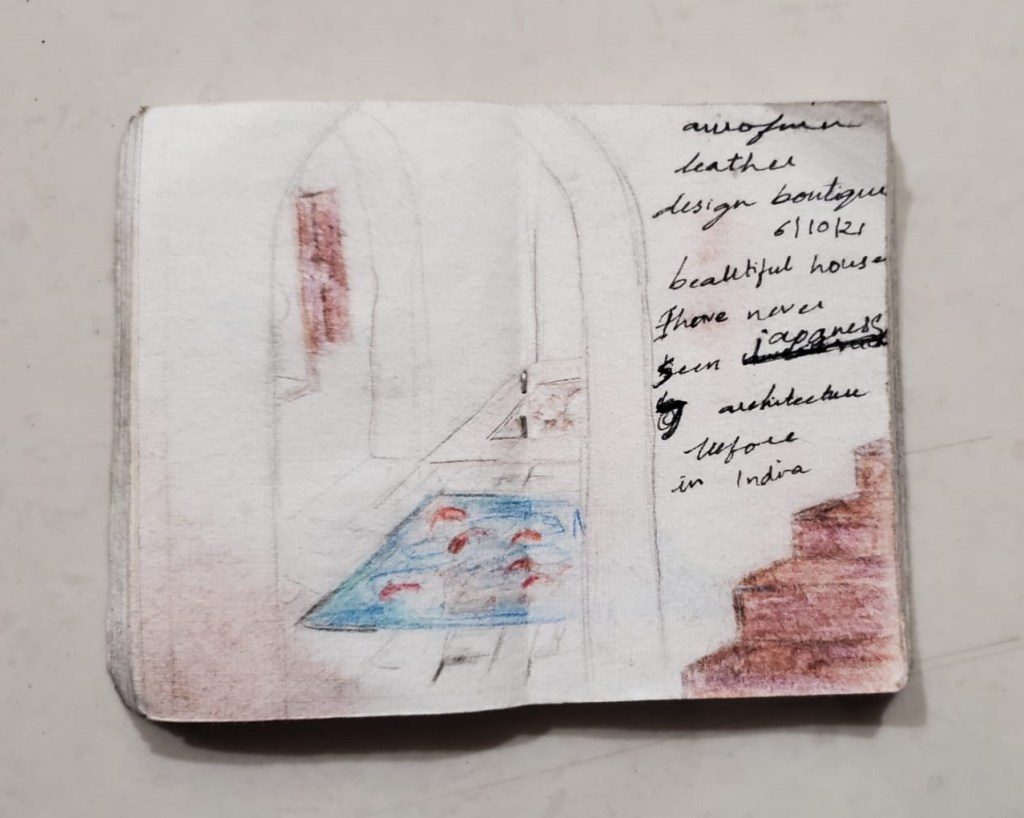 leather
design boutique
6/10/21
beautiful house
I have never
seen japaness
architecture
before
in India